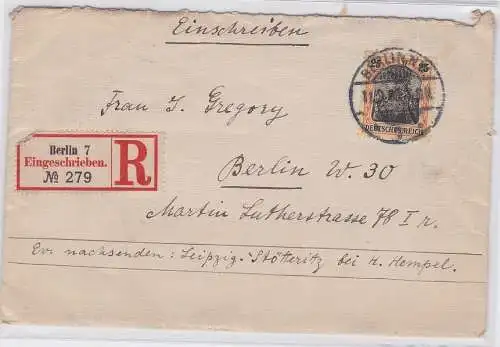 Einschreiben
Frau I. Gregory
Berlin 7
Eingeschrieben.
№ 279
R
DEUTSCHES REICH
Berlin W. 30
Martin Lutherstrasse 78 I r.
Ev. nachsenden: Leipzig-Stötteritz bei H. Hempel.